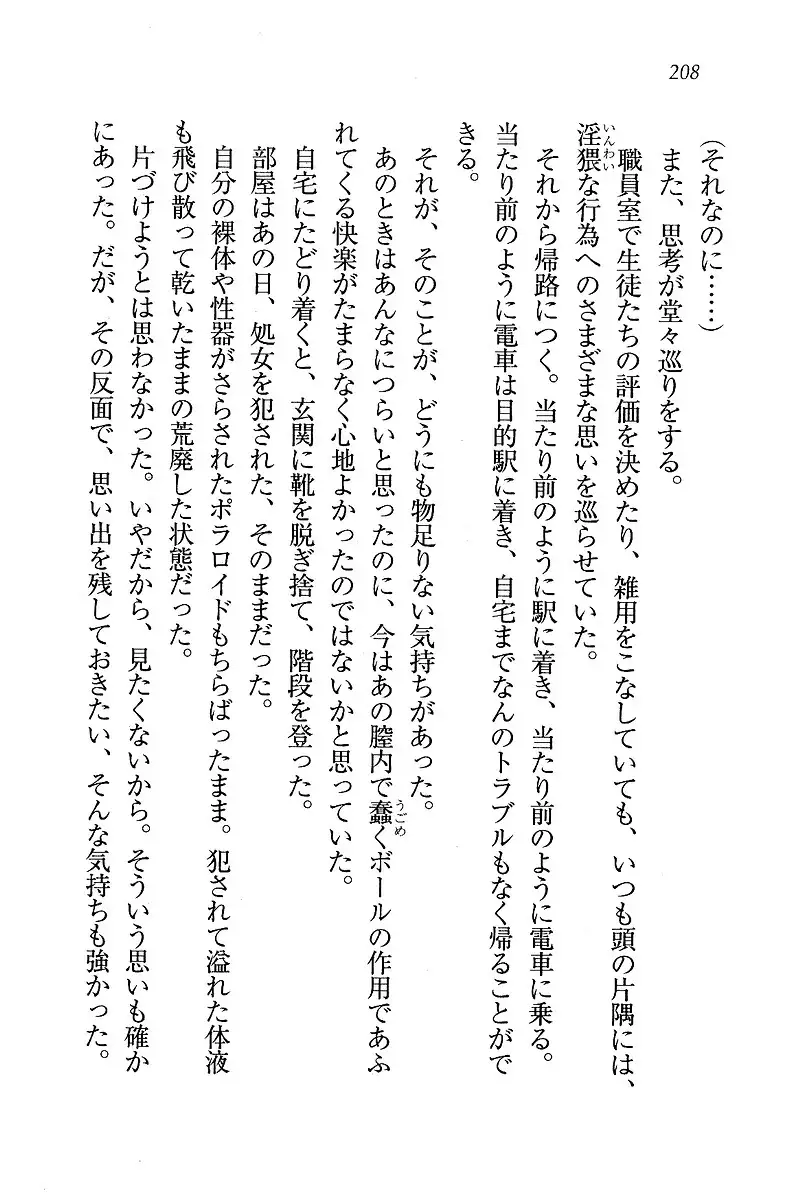 208
(それなのに……)
また、思考が堂々巡りをする。
職員室で生徒たちの評価を決めたり、雑用をこなしていても、いつも頭の片隅には、
淫猥な行為へのさまざまな思いを巡らせていた。
いんわい
それから帰路につく。当たり前のように駅に着き、当たり前のように電車に乗る。
当たり前のように電車は目的駅に着き、自宅までなんのトラブルもなく帰ることがで
きる。
それが、そのことが、どうにも物足りない気持ちがあった。
あのときはあんなにつらいと思ったのに、今はあの膣内で蠢くボールの作用であふ
うごめ
れてくる快楽がたまらなく心地よかったのではないかと思っていた。
自宅にたどり着くと、玄関に靴を脱ぎ捨て、階段を登った。
部屋はあの日、処女を犯された、そのままだった。
自分の裸体や性器がさらされたポラロイドもちらばったまま。犯されて溢れた体液
も飛び散って乾いたままの荒廃した状態だった。
片づけようとは思わなかった。いやだから、見たくないから。そういう思いも確か
にあった。だが、その反面で、思い出を残しておきたい、そんな気持ちも強かった。